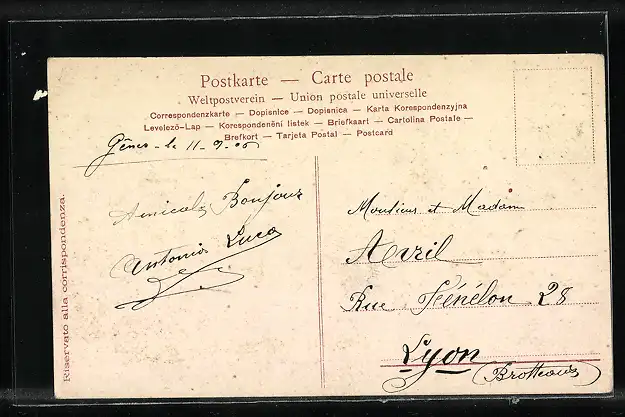 Postkarte — Carte postale
Weltpostverein — Union postale universelle
Correspondenzkarte — Dopisnice — Dopisnica — Karta Korespondenzyjna
Levelezö-Lap — Korespondenční listek — Briefkaart — Cartolina Postale —
Brefkort — Tarjeta Postal — Postcard
Gênes - le 11-9-06
Riservato alla corrispondenza.
Amicals Bonjour
Antonio Luca
Monsieur et Madame
Avril
Rue Fénélon 28
Lyon
(Brotteaux)